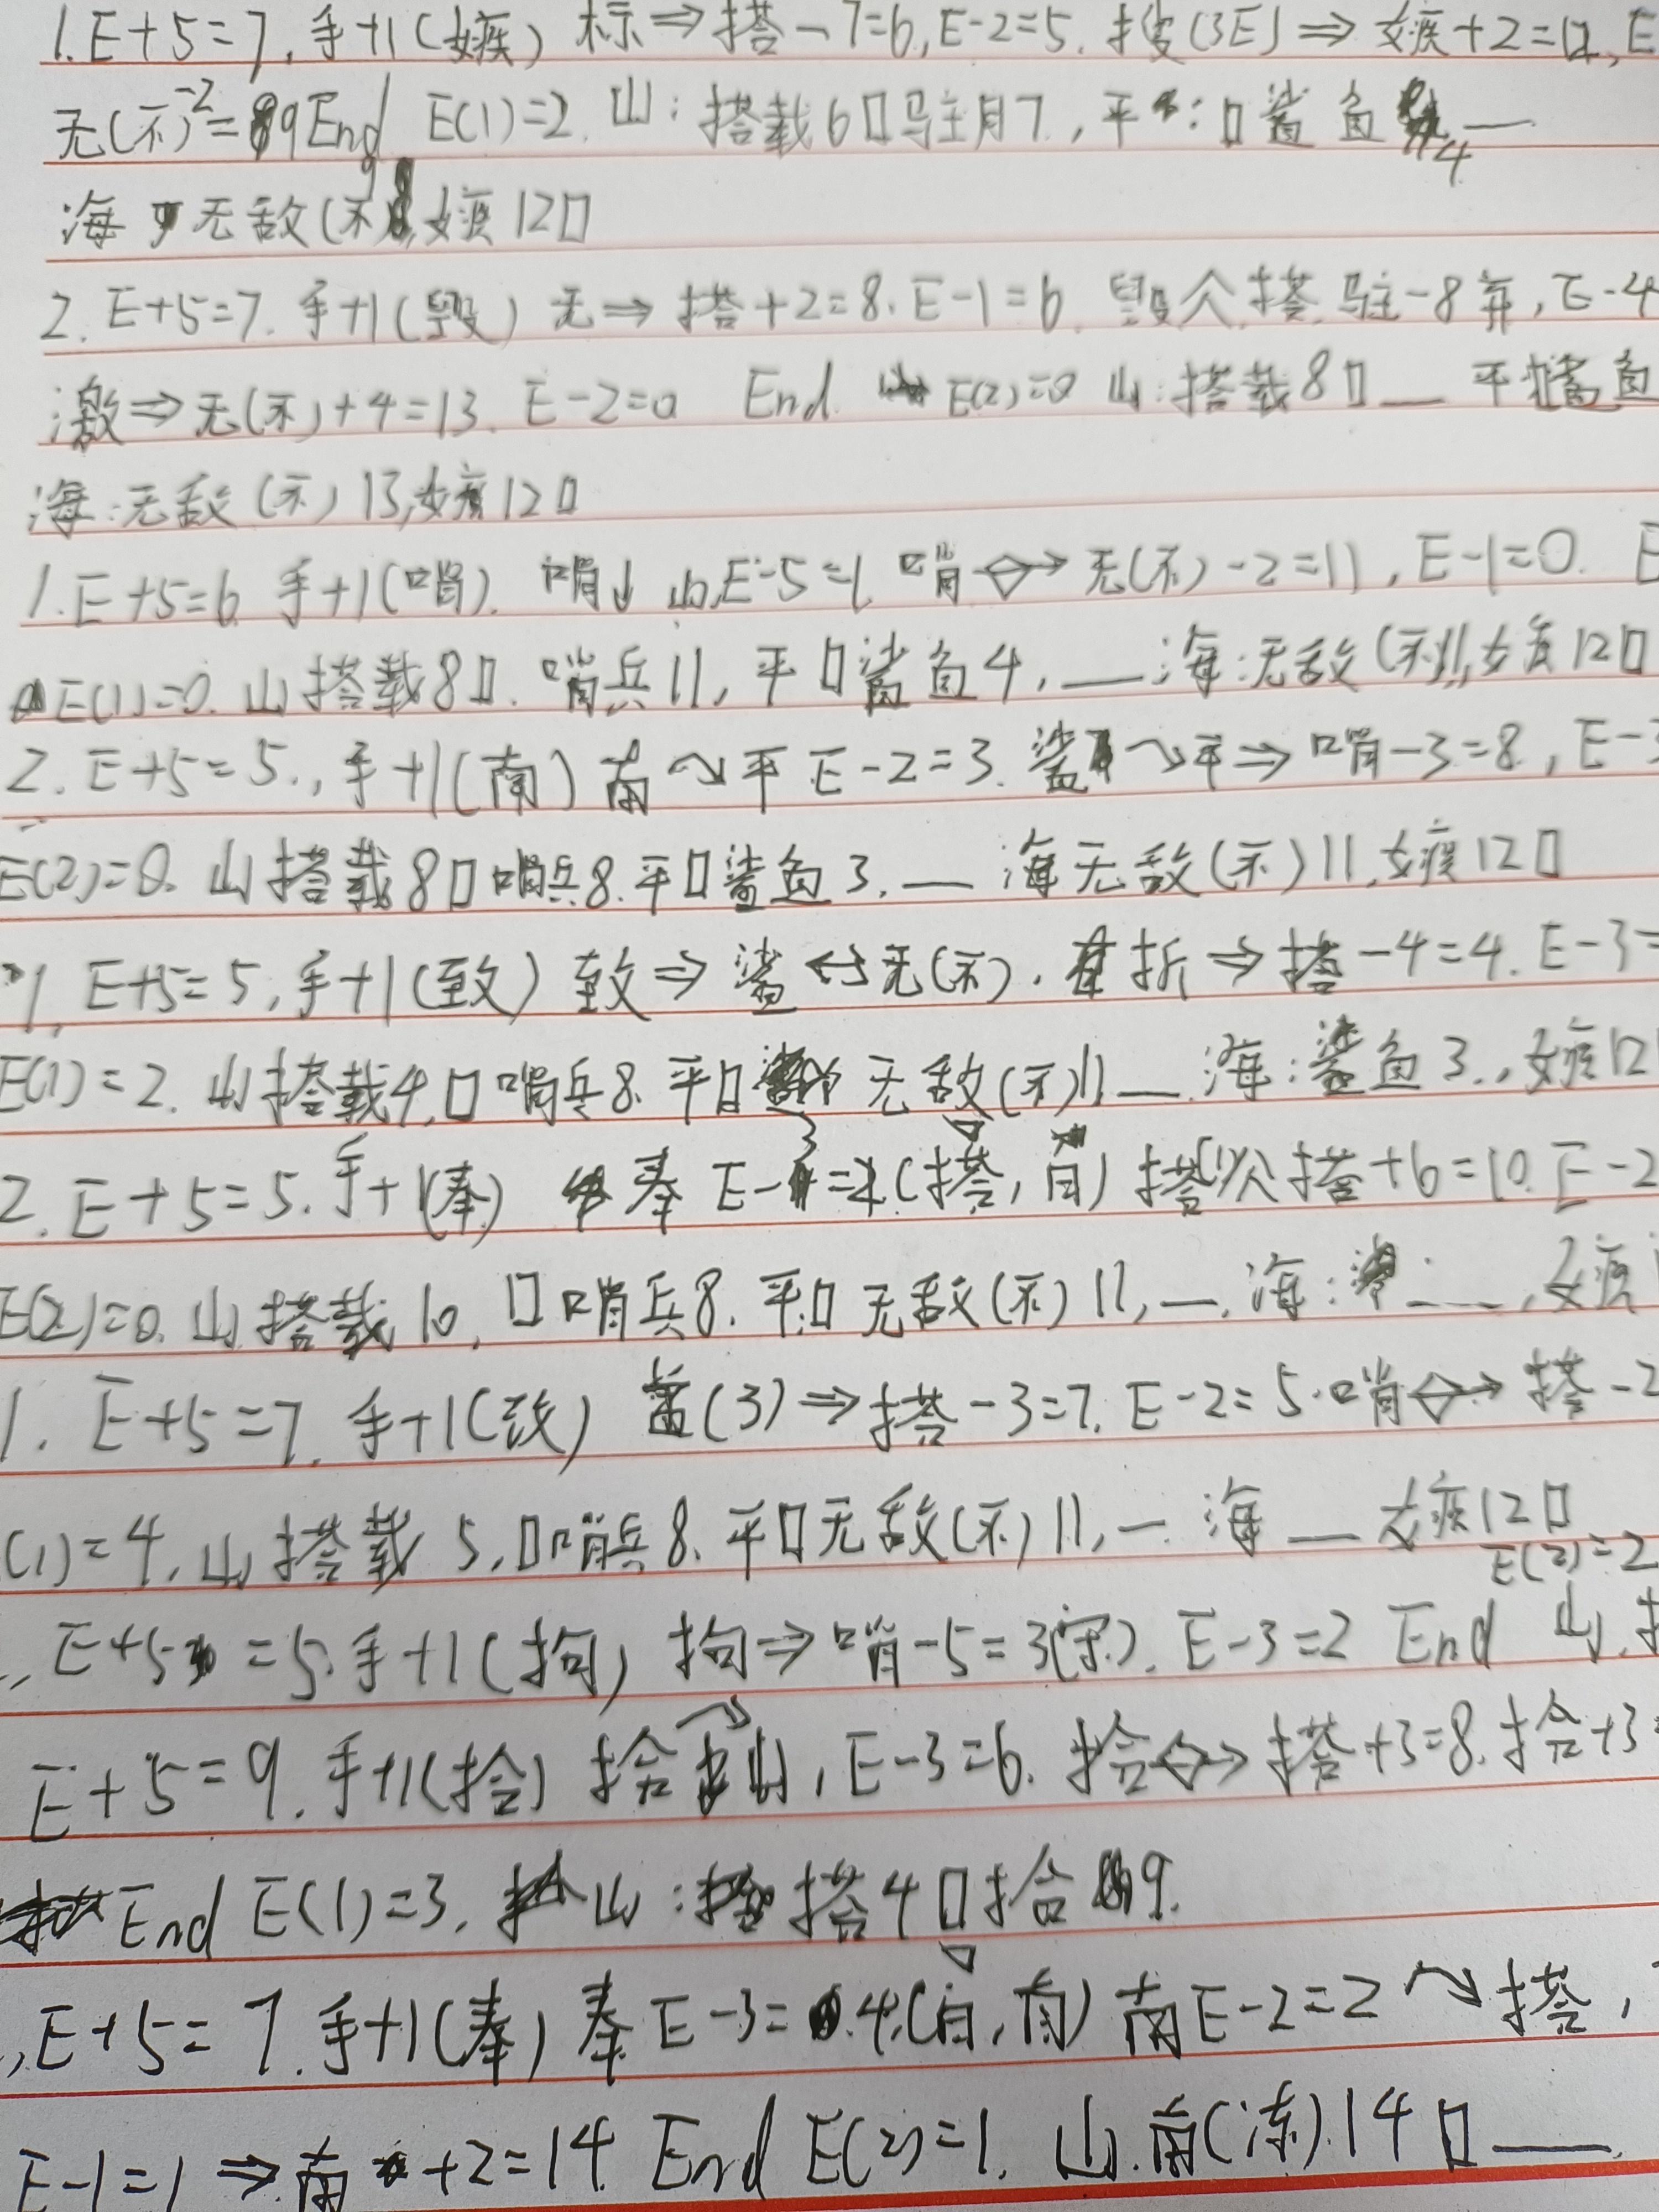 1. E+5=7, 手+1(嫉) 标⇒搭-7=6, E-2=5. 搜(3E)⇒嫉+2=12, E
无(不)-2=9 End E(1)=2. 山: 搭载6口马主月7, 平: 口鲨鱼4 —
海 无敌(不)9, 嫉12口
2. E+5=7. 手+1(毁) 无⇒搭+2=8. E-1=6. 毁 搭. 驻-8弃, E-4
激⇒无(不)+4=13. E-2=0 End. E(2)=0 山: 搭载8口— 平口鲨鱼
海: 无敌(不)13, 嫉12口
1. E+5=6. 手+1(哨). 哨↓山, E-5=1. 哨⇔无(不)-2=11, E-1=0. E
E(1)=0. 山 搭载8口. 哨兵11, 平口鲨鱼4, — 海: 无敌(不)11, 嫉12口
2. E+5=5., 手+1(南) 南↘平 E-2=3. 鲨↘平⇒哨-3=8, E-3
E(2)=0. 山 搭载8口哨兵8. 平口鲨鱼3. — 海 无敌(不)11, 嫉12口
1. E+5=5, 手+1(致) 致⇒鲨↔无(不). 折⇒搭-4=4. E-3=
E(1)=2. 山 搭载4, 口哨兵8. 平口 无敌(不)11 —. 海: 鲨鱼3., 嫉12
2. E+5=5. 手+1(奉) 奉 E-3=2 (搭, 南) 搭 搭+6=10. E-2
E(2)=0. 山 搭载10, 口哨兵8. 平口 无敌(不)11, —. 海: —, 嫉
1. E+5=7. 手+1( ) (3)⇒搭-3=7. E-2=5. 哨⇔搭-2
(1)=4, 山 搭载5, 口哨兵8. 平口无敌(不)11, —. 海 — 嫉12口
E(2)=2
., E+5=5. 手+1(拘) 拘⇒哨-5=3 E-3=2 End 山.
E+5=9. 手+1(拾) 拾↘山, E-3=6. 拾⇔搭+3=8. 拾+3
End E(1)=3. 山: 搭4口拾9.
., E+5=7. 手+1(奉) 奉 E-3=4. (白, 南) 南 E-2=2↘搭,
E-1=1⇒南+2=14. End E(2)=1. 山. 南(冻). 14口—.